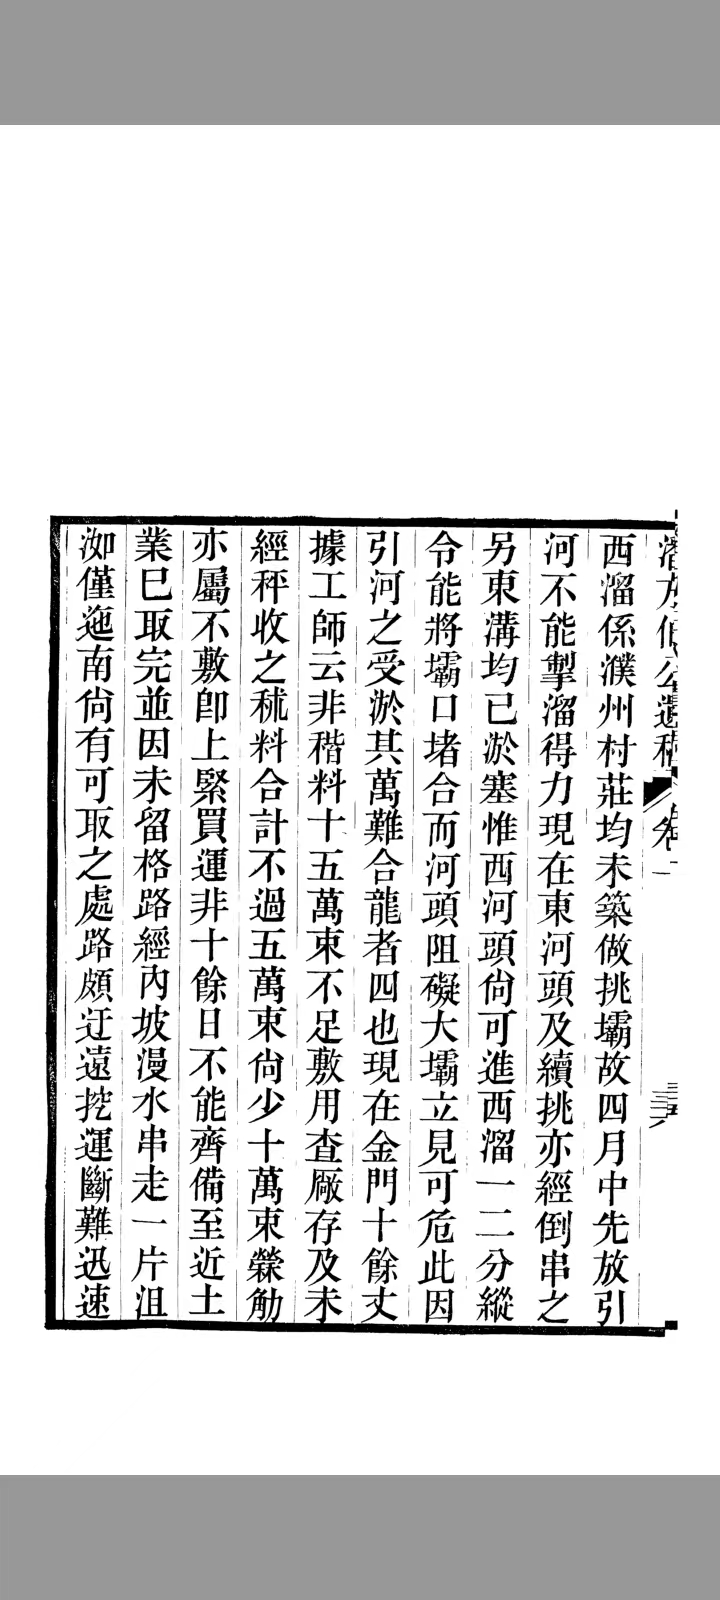 公遺
卷二
西溜係濮州村莊均未築做挑壩故四月中先放引
河不能掣溜得力現在東河頭及續挑亦經倒串之
另東溝均已淤塞惟西河頭尚可進西溜一二分縱
令能將壩口堵合而河頭阻礙大壩立見可危此因
引河之受淤其萬難合龍者四也現在金門十餘丈
據工師云非稭料十五萬束不足敷用查廠存及未
經秤收之秫料合計不過五萬束尚少十萬束檾觔
亦屬不敷卽上緊買運非十餘日不能齊備至近土
業已取完並因未留格路經內坡漫水串走一片沮
洳僅迤南尚有可取之處路頗迂遠挖運斷難迅速